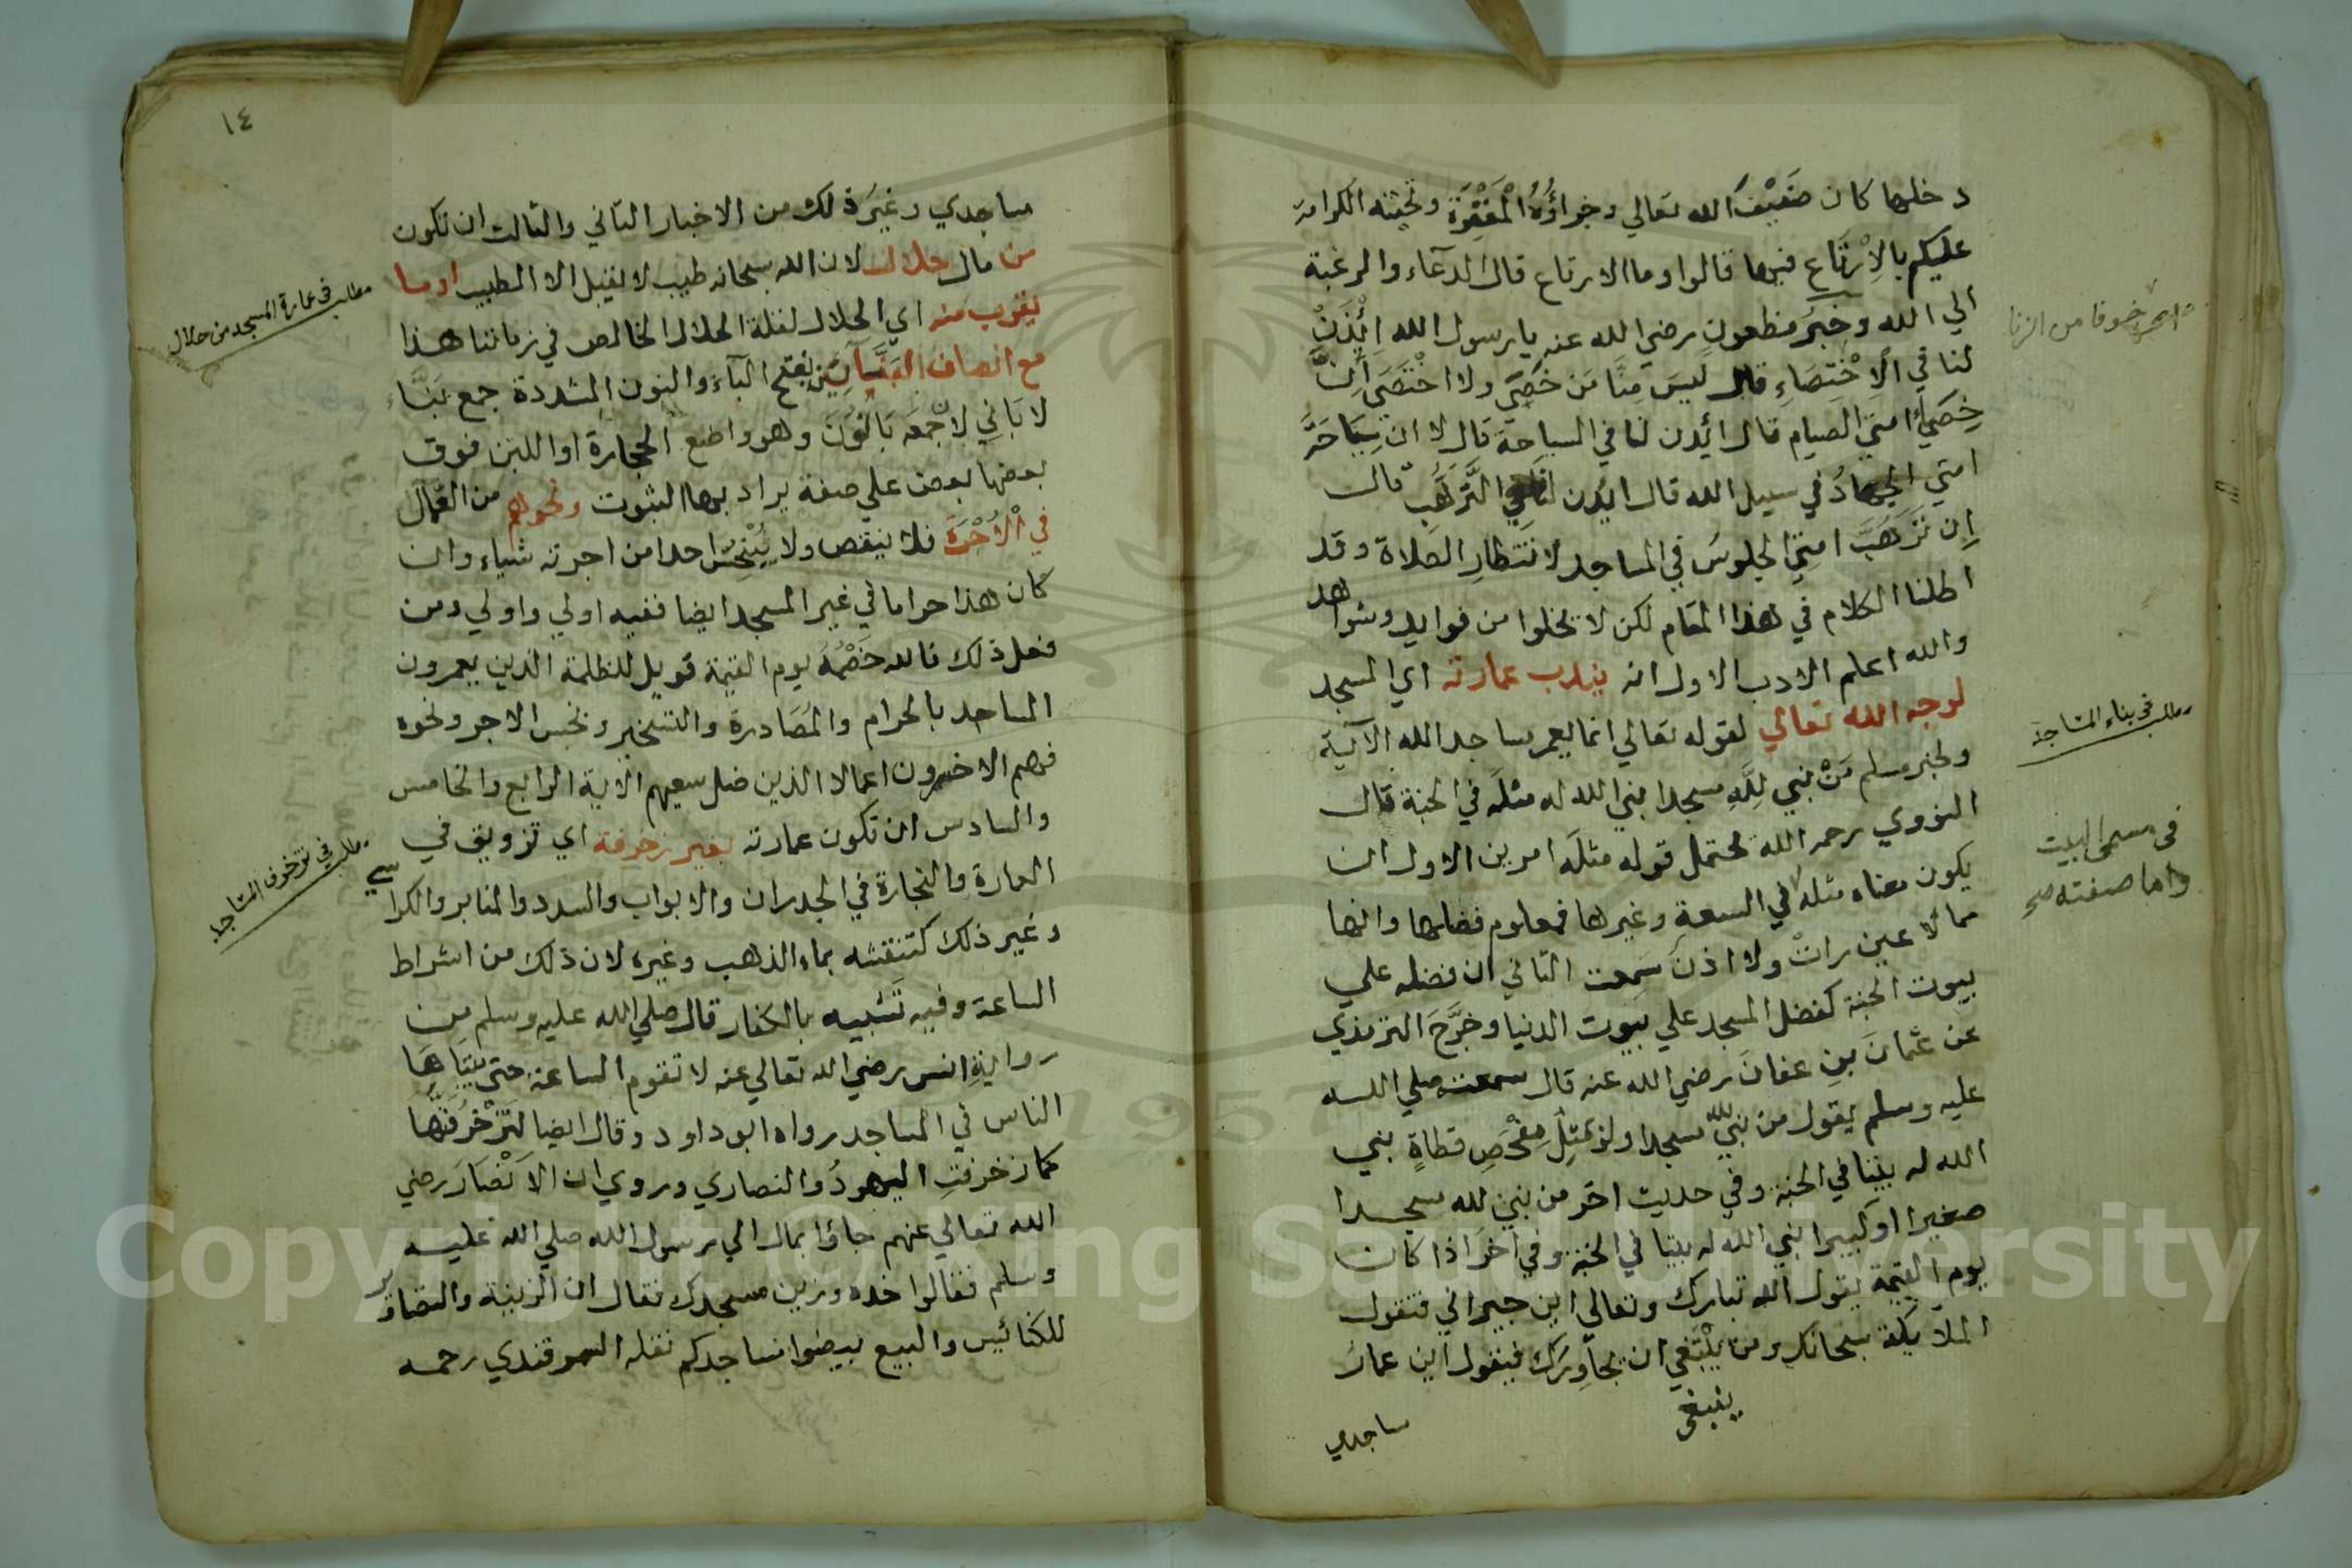 دخلها كان ضَيْفَ الله تعالي وجزاؤُهُ الْمَغْفِرَةُ وتحيته الكرامة
عليكم بالاِرْتِاعِ فيها قالوا وما الارتاع قال الدعاء والرغبة
الي الله وخبرُ مظعونٍ رضي الله عنه يا رسول الله ائْذَنْ
لنا في الاِخْتِصَاءِ قال ليسَ مِنَّا مَن خَصَي ولا اخْتَصَي اِنَّ
خِصَيَ امتي الصيام قال ائذن لنا في السياحة قال لا ان سِيَاحَةَ
امتي الجهادُ في سبيل الله قال ايذن لنا في التَّرَهُّبِ قال
اِن تَرَهُّبَ امتي الجلوسُ في المساجد لانتظارِ الصلاة وقد
اطلنا الكلام في هذا المقام لكن لا يخلوا من فوايد وشواهد
والله اعلم الادب الاول انه يندب عمارته اي المسجد
لوجه الله تعالي لقوله تعالي انما يعمر مساجد الله الآية
ولخبر مسلم مَنْ بني لِلَّهِ مسجدا بني الله له مثلَه في الجنة قال
النووي رحمه الله يحتمل قوله مثلَه امرين الاول ان
يكون معناه مثله في السعة وغيرها فمعلوم فضلها وانها
مما لا عين راتْ ولا اذن سَمِعت الثاني ان فضله علي
بيوت الجنة كفضل المسجد علي بيوت الدنيا وخرَّجَ الترمذي
عن عثمانَ بنِ عفانَ رضي الله عنه قال سمعت صلي الله
عليه وسلم يقول من بني لله مسجدا ولو بمثلِ مِفْحَصِ قطاةٍ بني
الله له بيتا في الجنة وفي حديث اخر من بني لله مسجدا
صغيرا او كبيرا بني الله له بيتا في الجنة وفي آخرَ اذا كان
يوم القيمة يقول الله تبارك وتعالي اين جيراني فتقول
الملائِكة سبحانك ومن يَنْبَغي ان يجاوِرَك فيقول اين عمار
ينبغي
مساجدي
خوفا من الزنا
مطلب في بناء المساجد
في مسمى البيت
واما صفته صح
١٤
مساجدي وغيرَ ذلك من الاخبار الثاني والثالث ان تكون
من مال حلال لان الله سبحانه طيب لا يقبل الا الطيب او ما
يقرب منه اي الحلال لقلة الحلال الخالص في زماننا هذا
مع انصاف البنَّآئين بفتح الباء والنون المشددة جمع بَنَّاء
لا بَاني لاَنَّ جَمْعَه بَانُونَ وهو واضع الحجارة او اللبن فوق
بعضها بعض علي صفة يراد بها الثبوت ونحوهم من العمال
في الْأُجْرَة فلا ينقص ولا يَبْخِسُ احدا من اجرته شياء وان
كان هذا حراما في غير المسجد ايضا ففيه اولي واولي ومن
فعل ذلك فالله خَصْمُهُ يوم القيمة فويل للظلمة الذين يعمرون
المساجد بالحرام والمُصَادرة والتسخير وبخس الاجر ونحوه
فهم الاخسرون اعمالا الذين ضل سعيهم الاية الرابع والخامس
والسادس ان تكون عمارته بغير زخرفة اي تزويق في
العمارة والنجارة في الجدران والابواب والسدد والمنابر والكراسي
وغير ذلك كتنقشه بماء الذهب وغيره لان ذلك من اشراط
الساعة وفيه تَشبيه بالكفار قال صلي الله عليه وسلم من
روايةِ انس رضي الله تعالي عنه لا تقوم الساعة حتي يتباهَا
الناس في المساجد رواه ابو داود وقال ايضا لتُزَخْرِفُنَّها
كما زخرفتِ اليهودُ والنصاري وروي ان الاَنْصَارَ رضي
الله تعالي عنهم جاؤا بمال الي رسول الله صلي الله عليه
وسلم فقالوا خذه وزين مسجدك فقال ان الزينة والتصاوير
للكنائِس والبيع بيضوا مساجدكم نقله السمرقندي رحمه
مطلب في عمارة المسجد من حلال
مطلب في تزخرف المساجد
Copyright © King Saud University
1957